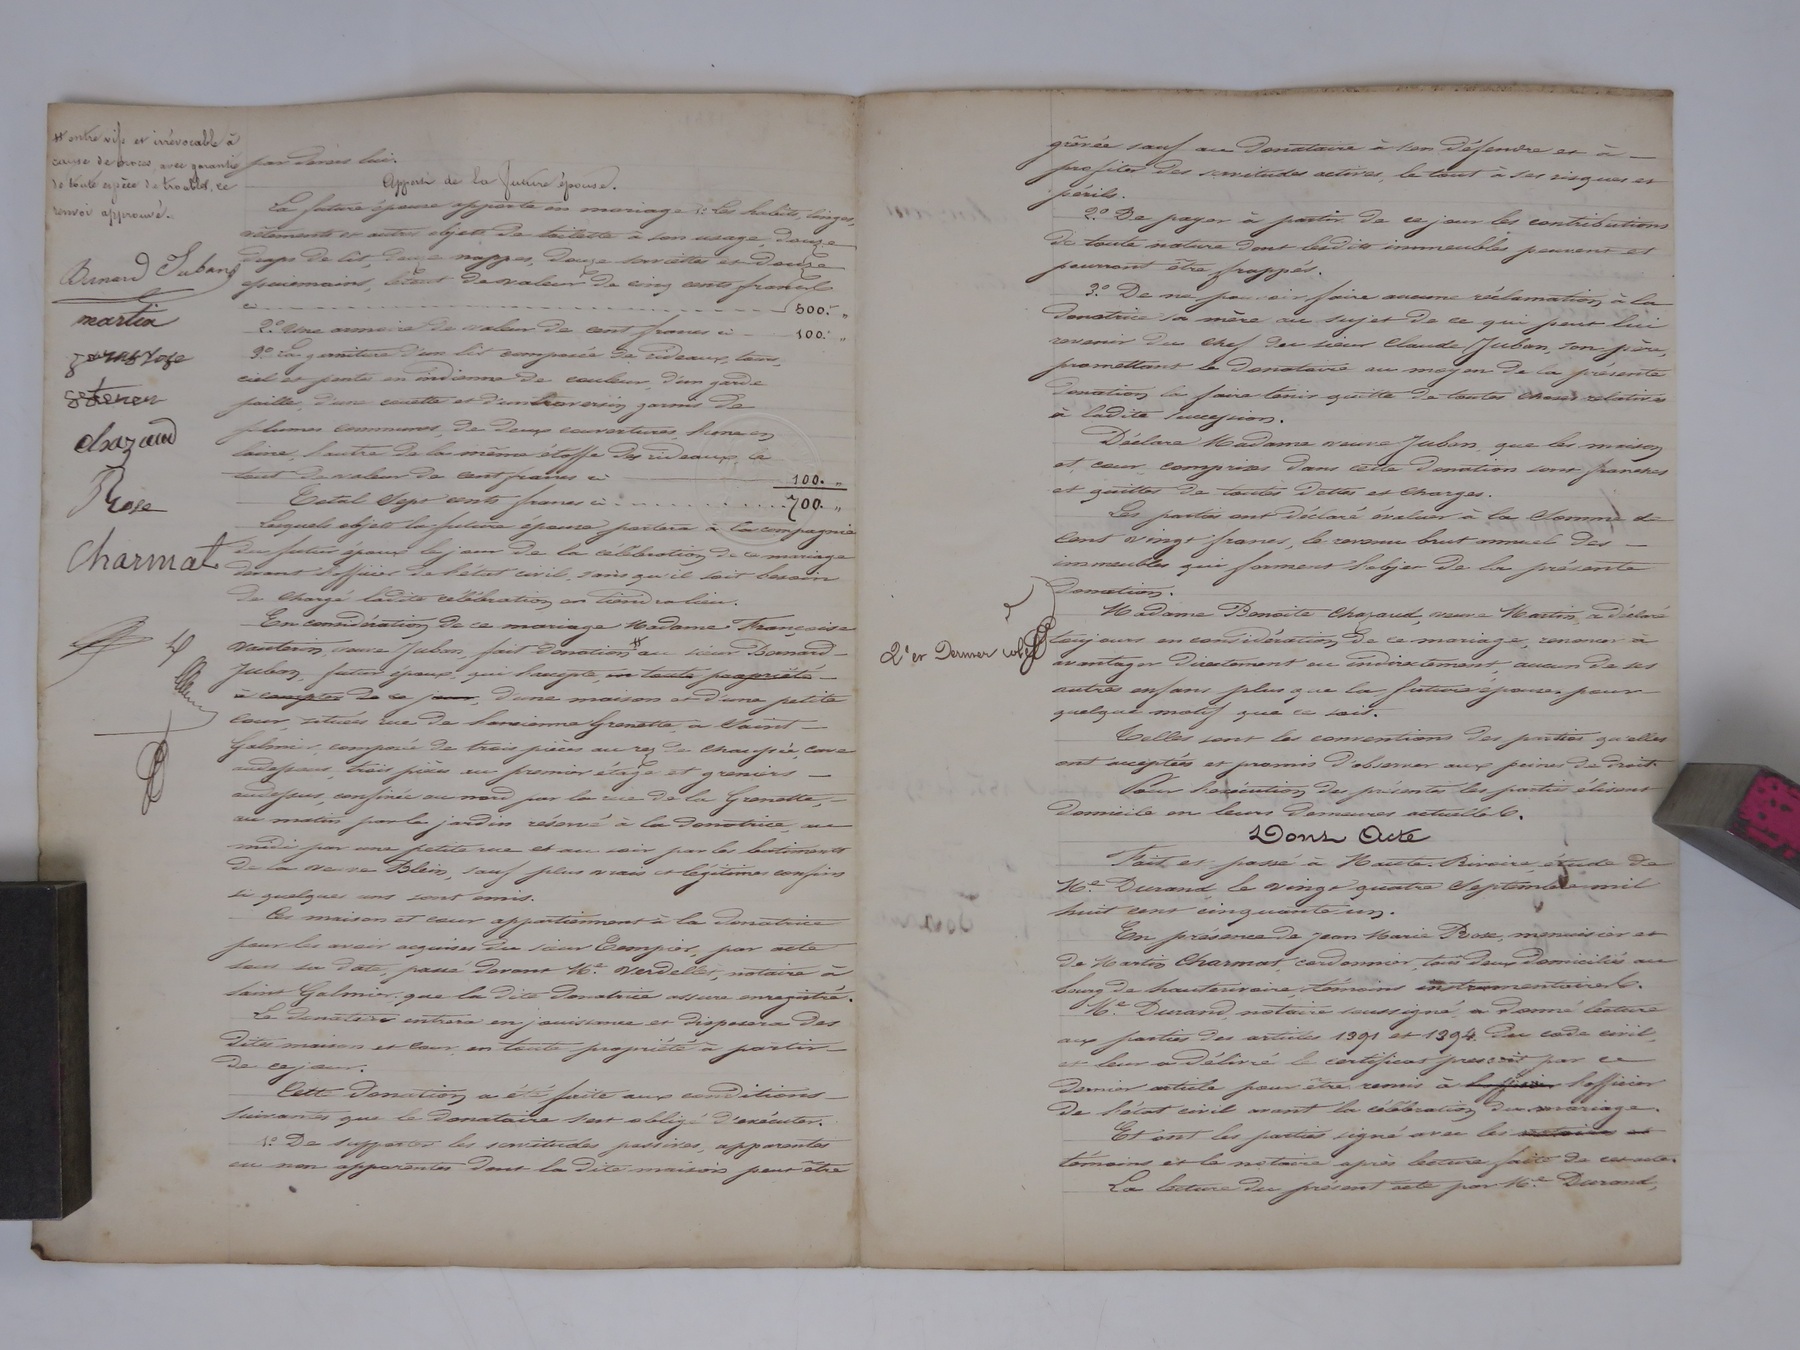 # entre vifs et irrévocable à
cause de noces, avec garantie
de toute espèce de troubles, ce
renvoi approuvé.
Benard Juban
martin
chazaud
Rose
Charmat
par devers lui.
Apport de la future épouse.
La future épouse apporte en mariage 1º les habits, linges,
vêtements et autres objets de toilette à son usage, douze
draps de lit, douze nappes, douze serviettes et douze
essuiemains, le tout de valeur de cinq cents francs
ci 500. "
2º Une armoire de valeur de cent francs ci 100. "
3º La garniture d'un lit composée de rideaux, tour,
ciel et pente en indienne de couleur, d'un garde
paille, d'une couette et d'un traversin garnis de
plumes communes, de deux couvertures, l'une en
laine, l'autre de la même étoffe des rideaux, le
tout de valeur de cent francs ci 100. "
Total Sept cents francs ci 700. "
Lesquels objets la future épouse portera à la compagnie
du futur époux le jour de la célébration de ce mariage
devant l'officier de l'état civil, sans qu'il soit besoin
de charge, ladite célébration en tiendra lieu.
En considération de ce mariage Madame Françoise
veuve Juban, fait donation # au sieur Benard
Juban, futur époux, qui l'accepte, en toute propriété
à compter de ce jour, d'une maison et d'une petite
cour, situées rue de l'ancienne Grenette, à Saint
Galmier, composée de trois pièces au rez de chaussée, cave
audessous, trois pièces au premier étage et greniers
audessus, confinée au nord par la rue de la Grenette,
au matin par le jardin réservé à la donatrice, au
midi par une petite rue et au soir par les bâtiments
de la veuve Blein, sauf plus vrais et légitimes confins
si quelques uns sont omis.
Ces maison et cour appartiennent à la donatrice
pour les avoir acquises du sieur Tempier, par acte
sous sa date, passé devant Me Verdellet, notaire à
Saint Galmier, que la dite donatrice assure enregistré.
Le donataire entrera en jouissance et disposera des
dites maison et cour en toute propriété à partir
de ce jour.
Cette donation a été faite aux conditions
suivantes que le donataire s'est obligé d'exécuter.
1º De supporter les servitudes passives, apparentes
ou non apparentes dont la dite maison peut être
grêvée sauf au donataire à s'en défendre et à
profiter des servitudes actives, le tout à ses risques et
périls.
2º De payer à partir de ce jour les contributions
de toute nature dont lesdits immeubles peuvent et
pourront être frappés.
3º De ne pouvoir faire aucune réclamation à la
donatrice sa mère au sujet de ce qui peut lui
revenir du chef du sieur Claude Juban, son père,
promettant le donataire au moyen de la présente
donation la faire tenir quitte de toutes choses relatives
à ladite succession.
Déclare Madame veuve Juban, que les maison
et cour comprises dans cette donation sont franches
et quittes de toutes dettes et charges.
Les parties ont déclaré évaluer à la somme de
cent vingt francs, le revenu brut annuel des
immeubles qui forment l'objet de la présente
donation.
Madame Benoite Chazaud, veuve Martin, a déclaré
toujours en considération de ce mariage, renoncer à
avantager directement ou indirectement aucun de ses
autres enfans plus que la future épouse, pour
quelque motif que ce soit.
Telles sont les conventions des parties qu'elles
ont acceptées et promis d'observer aux peines de droit.
Pour l'exécution des présentes les parties élisent
domicile en leurs demeures actuelles.
Dont Acte
Fait et passé à Haute-Rivoire, étude de
Me Durand le vingt quatre Septembre mil
huit cent cinquante un.
En présence de Jean Marie Rose, menuisier et
de Martin Charmat, cordonnier, tous deux domiciliés au
bourg de hauterivoire, témoins instrumentaires.
Me Durand, notaire soussigné, a donné lecture
aux parties des articles 1391 et 1394 du code civil,
et leur a délivré le certificat prescrit par ce
dernier article pour être remis à l'officier l'officier
de l'état civil avant la célébration du mariage.
Et ont les parties signé avec les notaires et
témoins et le notaire après lecture faite de cet acte.
La lecture du présent acte par Me Durand,
2e et Dernier rôle